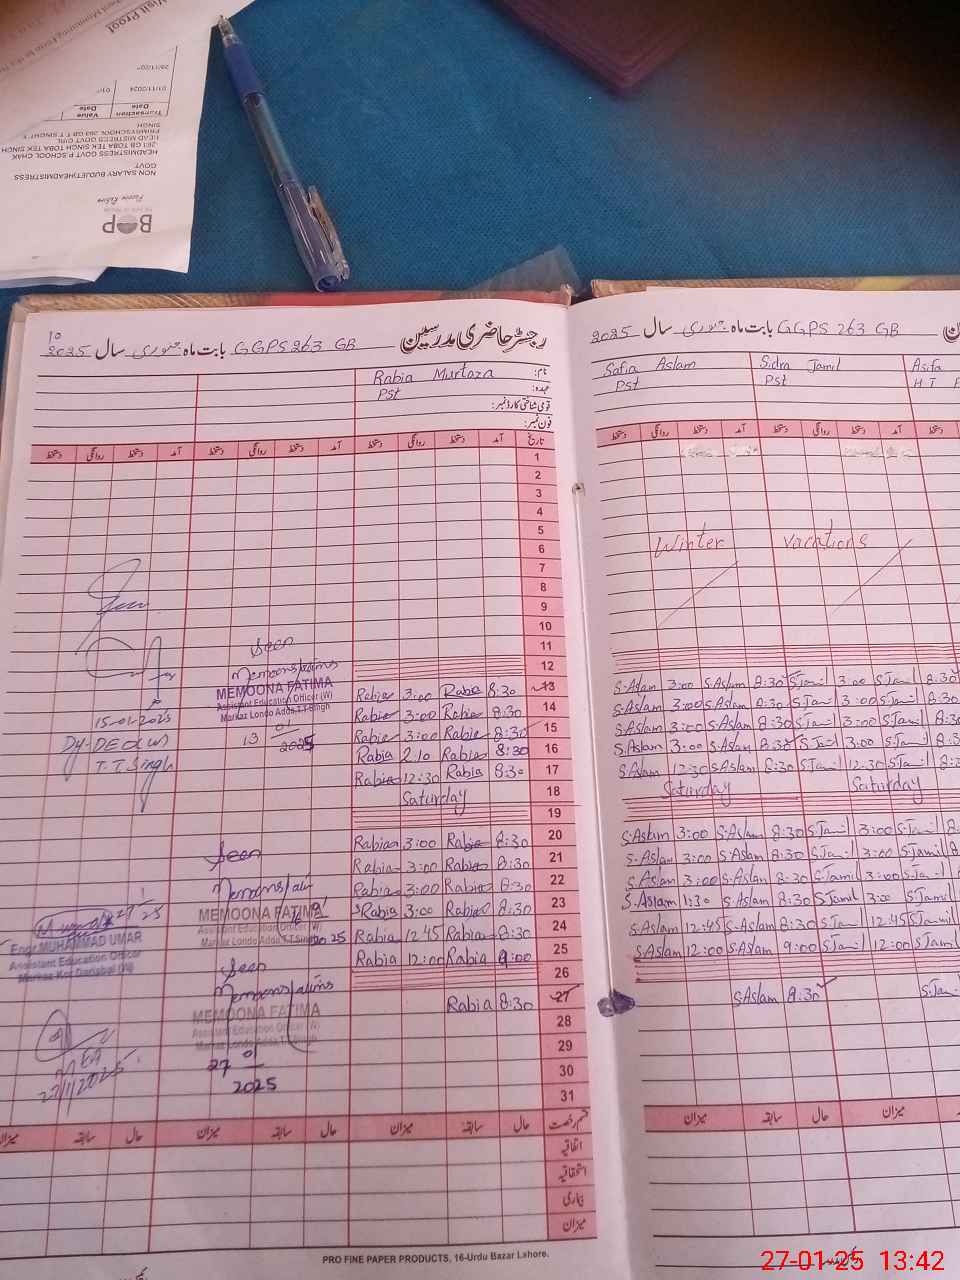 Visit Proof
Transaction Date
Value Date
01/11/2024
NON SALARY BUDJET/HEADMISTRESS
GOVT
HEADMISTRESS GOVT P SCHOOL CHAK
263 GB TOBA TEK SINGH
HEAD MISTRESS GOVT GIRL
PRIMRYSCHOOL 263 GB T T SINGH
SINGH
BOP
رجسٹر حاضری مدرسین بابت ماہ جنوری سال 2025
GGPS 263 GB
۱۰
نام: Rabia Murtaza
عہدہ: Pst
قومی شناختی کارڈ نمبر:
فون نمبر:
تاریخ آمد دستخط روانگی دستخط آمد دستخط روانگی دستخط آمد دستخط روانگی دستخط
1
2
3
4
5
6
7
8
9
10
11
12
13 8:30 Rabia 3:00 Rabia
14 8:30 Rabia 3:00 Rabia
15 8:30 Rabia 3:00 Rabia
16 8:30 Rabia 2:10 Rabia
17 8:30 Rabia 12:30 Rabia
18 Saturday
19
20 8:30 Rabia 3:00 Rabia
21 8:30 Rabia 3:00 Rabia
22 8:30 Rabia 3:00 Rabia
23 8:30 Rabia 3:00 Rabia
24 8:30 Rabia 12:45 Rabia
25 9:00 Rabia 12:00 Rabia
26
27 8:30 Rabia
28
29
30
31
Seen
MEMOONA FATIMA
Assistant Education Officer (W)
Markaz Londo Adda,T.T.Singh
13 01
2025
15-01-2025
Dy-DEO
T.T.Singh
Seen
MEMOONA FATIMA
Markaz Londo Adda,T.T.Singh
2025
Engr.MUHAMMAD UMAR
Assistant Education Officer
Seen
MEMOONA FATIMA
Assistant Education Officer (W)
Markaz Londo Adda,T.T.Singh
27 01
2025
MEA
27/1/2025
قسم رخصت حال سابقہ میزان حال سابقہ میزان حال سابقہ میزان
اتفاقیہ
استحقاقیہ
بیماری
میزان
PRO FINE PAPER PRODUCTS, 16-Urdu Bazar Lahore.
بابت ماہ جنوری سال 2025
GGPS 263 GB
Safia Aslam
Pst
Sidra Jamil
Pst
Asifa
H T
آمد دستخط روانگی دستخط آمد دستخط روانگی دستخط
Winter vacations
S.Aslam 3:00 S.Aslam 8:30 S.Jamil 3:00 S.Jamil 8:30
S.Aslam 3:00 S.Aslam 8:30 S.Jamil 3:00 S.Jamil 8:30
S.Aslam 3:00 S.Aslam 8:30 S.Jamil 3:00 S.Jamil
S.Aslam 3:00 S.Aslam 8:30 S.Jamil 3:00 S.Jamil
S.Aslam 12:30 S.Aslam 8:30 S.Jamil 12:30 S.Jamil
Saturday Saturday
S.Aslam 3:00 S.Aslam 8:30 S.Jamil 3:00 S.Jamil
S.Aslam 3:00 S.Aslam 8:30 S.Jamil 3:00 S.Jamil
S.Aslam 3:00 S.Aslam 8:30 S.Jamil 3:00 S.Jamil
S.Aslam 1:30 S.Aslam 8:30 S.Jamil 3:00 S.Jamil
S.Aslam 12:45 S.Aslam 8:30 S.Jamil 12:45 S.Jamil
S.Aslam 12:00 S.Aslam 9:00 S.Jamil 12:00 S.Jamil
S.Aslam 8:30
میزان سابقہ حال میزان
27-01-25 13:42